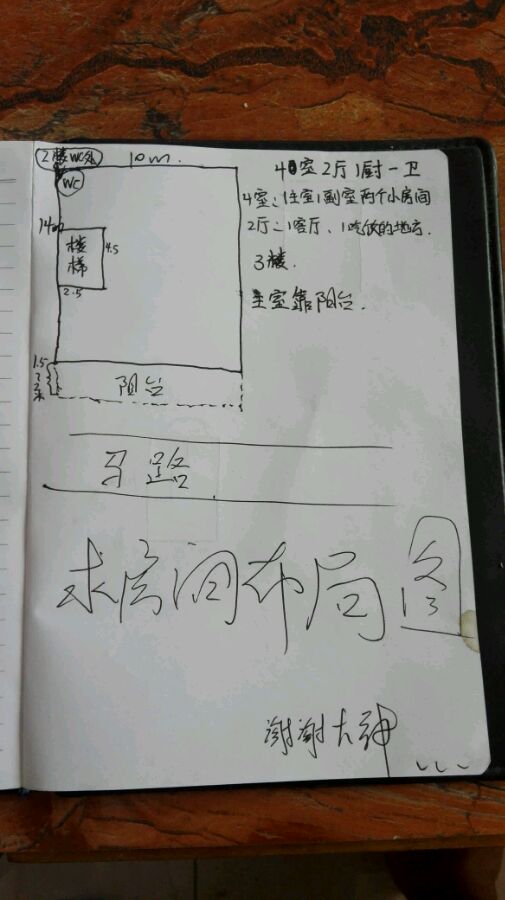 2楼WC处
10m.
WC
14m
楼梯
4.5
2.5
1.5
2
米
阳台
4室2厅1厨一卫
4室：住室1副室两个小房间
2厅：1客厅、1吃饭的地方.
3楼.
主室靠阳台.
马路
求房间布局图
谢谢大神
...